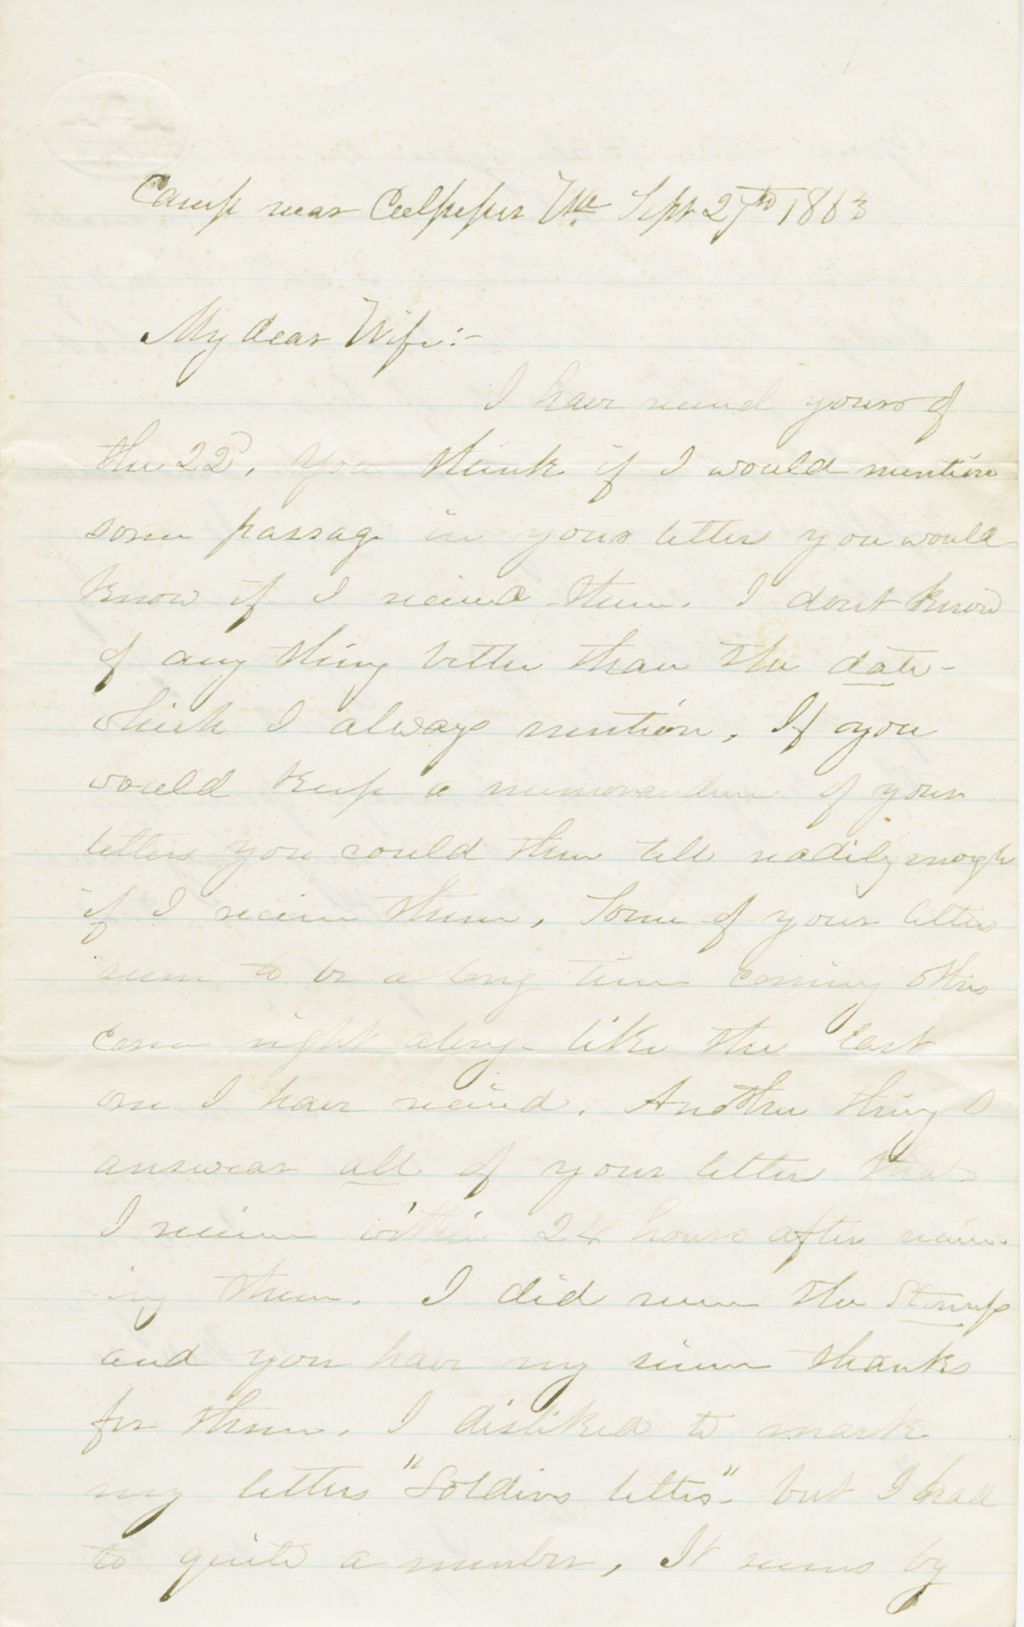 Camp near Culpeper Va. Sept 27th 1863
My dear Wife:-
I have received yours of
the 22d, You think if I would mention
some passage in your letters you would
know if I received them. I dont know
of any thing better than the date-
which I always mention, If you
would keep a memorandum of your
letters you could then tell readily enough
if I receive them, Some of your letters
seem to be a long time coming others
come right along like the last
one I have received. Another thing I
answear all of your letters that
I receive within 24 hours after receiv-
ing them. I did receive the Stamps
and you have my sincere thanks
for them. I disliked to mark
my letters "Soldiers letters" but I had
to quite a number, It seems by